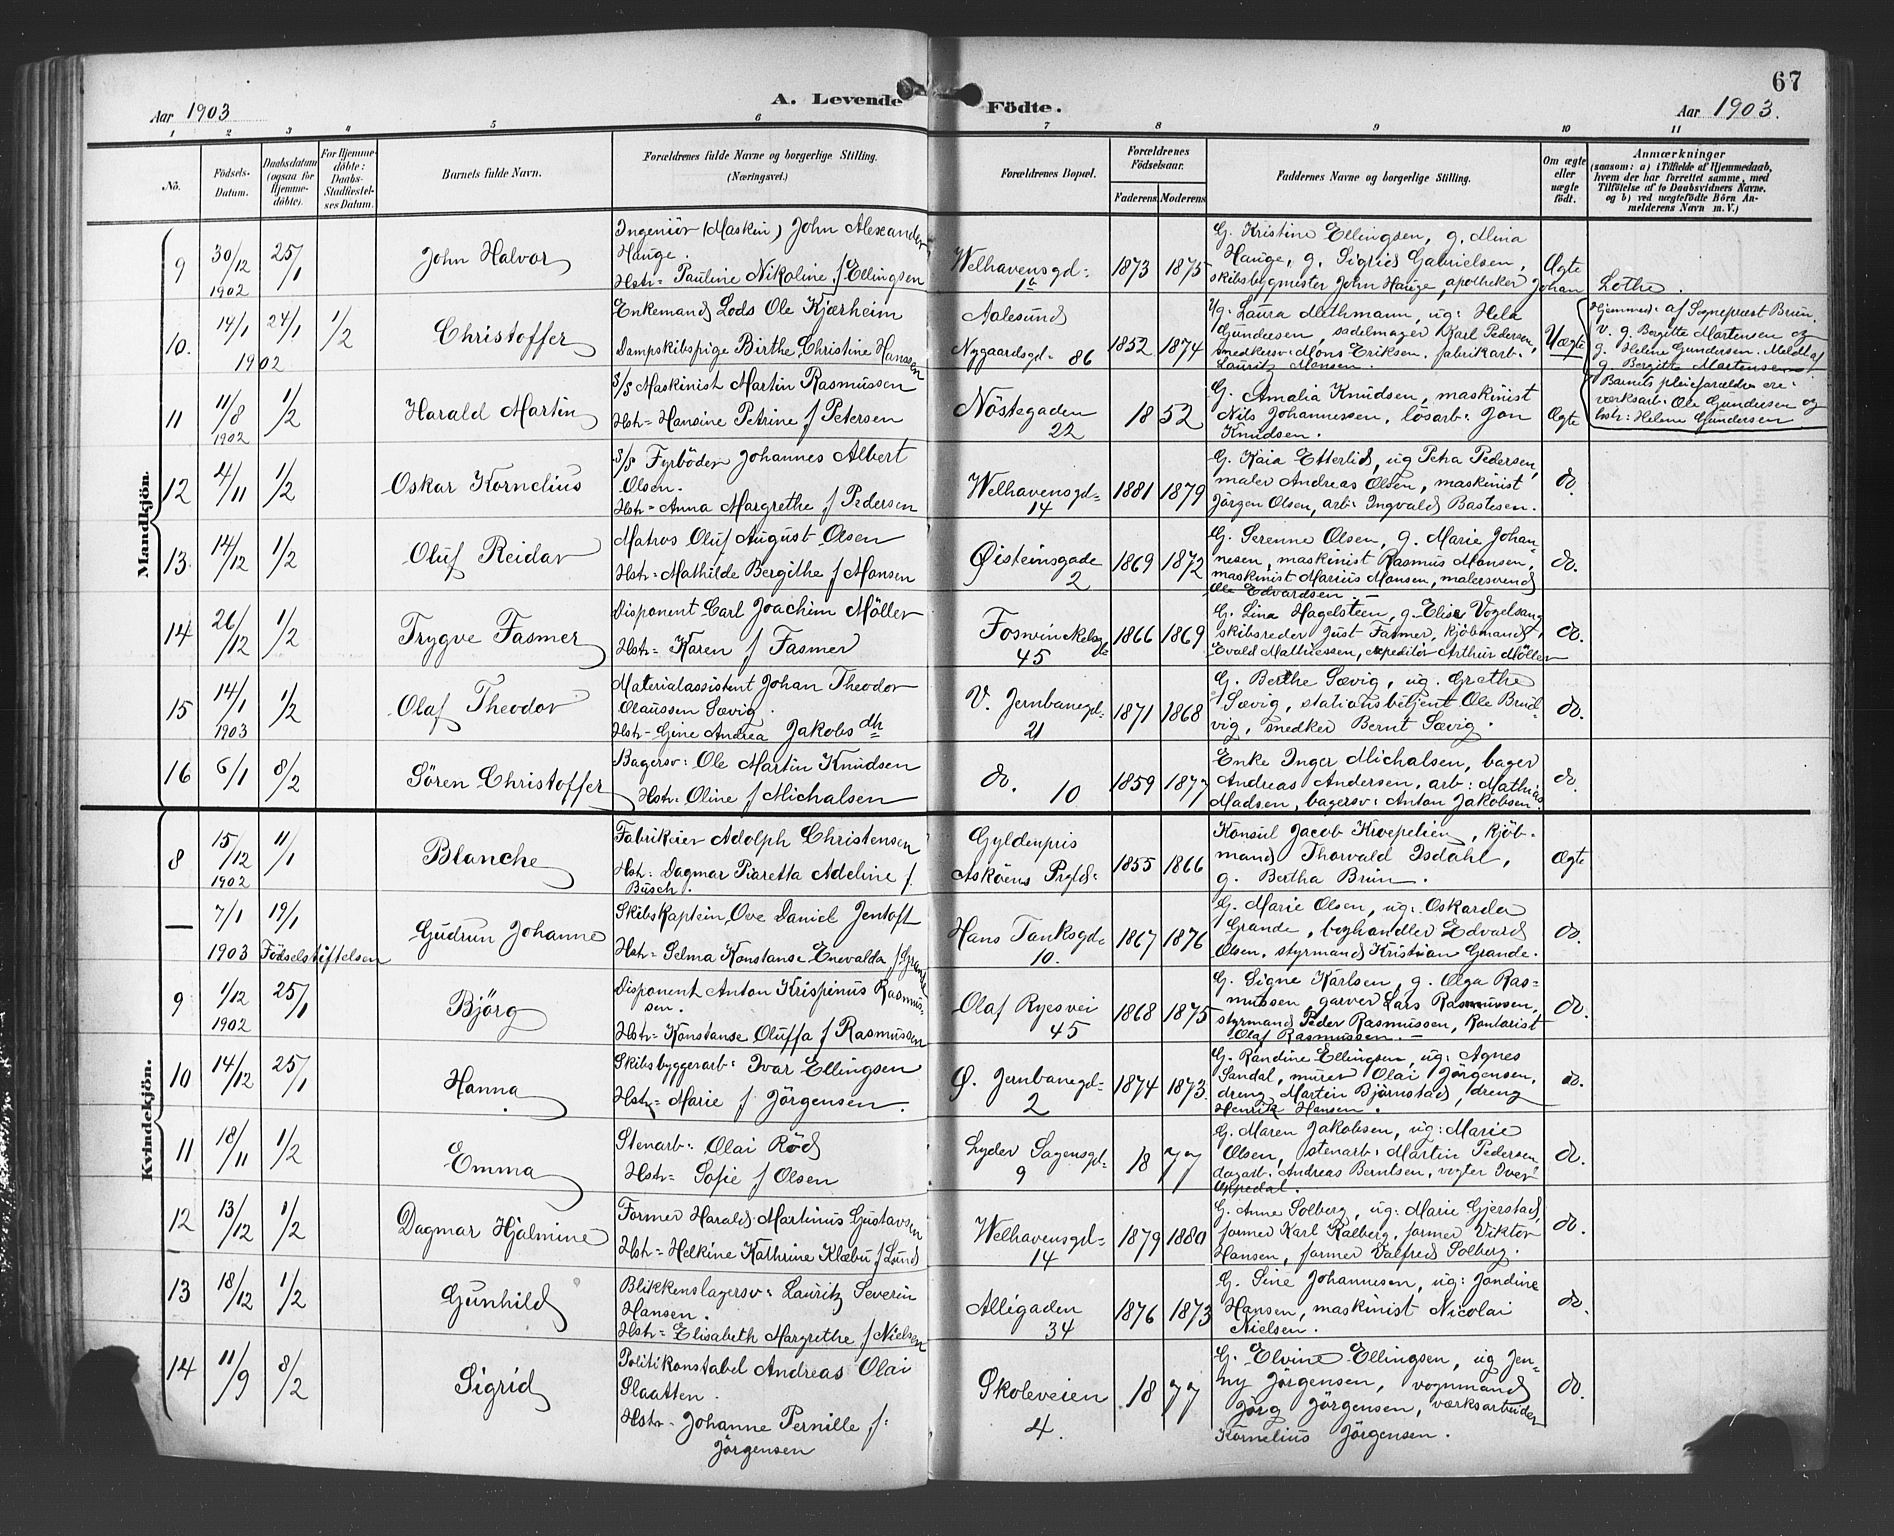 67
Aar 1903
A. Levende Födte.
Aar 1903.
1 2 3 4 5 6 7 8 9 10 11
No.
Födsels-Datum.
Daabsdatum (ogsaa for Hjemme-döbte).
For Hjemme-döbte: Daabs-Stadfæstel-ses Datum.
Barnets fulde Navn.
Forældrenes fulde Navne og borgerlige Stilling. (Næringsvei.)
Forældrenes Bopæl.
Forældrenes Födselsaar.
Faderens Moderens
Faddernes Navne og borgerlige Stilling.
Om ægte eller uægte födt.
Anmærkninger
(saasom: a) i Tilfælde af Hjemmedaab, hvem der har forrettet samme, med Tilföielse af to Daabsvidners Navne, og b) ved uægtefödte Börn An-melderens Navn m. V.)
Mandkjön.
9 30/12 1902 25/1 John Halvor
Ingeniör (Maskin) John Alexander
Hauge.
Hstr= Pauline Nikoline f Ellingsen
Welhavensgd= 1b 1873 1875
G. Kristine Ellingsen, g. Mina
Hauge, g. Sigrid Gabrielsen,
skibsbygmester John Hauge, apotheker Johan Lothe.
Ægte
10. 14/1 1902 24/1 1/2 Christoffer
Enkemand Lods Ole Kjærheim
Dampskibspige Birthe Christine Hanssen
Aalesund
Nygaardsgd= 86 1852 1874
Ug: Laura Methmann, ug: Hela
Gundersen, sadelmager Karl Pedersen,
snedkersv: Mons Eriksen, fabrikarb=
Lauritz Monsen.
Uægte
Hjemmed: af Sognepræst Brun.
v. g. Bergitte Martensen og
g. Helene Gundersen. Meldt af
g. Bergitte Martensen
Barnets pleieforældre ere:
værksarb: Ole Gundersen og
hstr: Helene Gundersen
11 11/8 1902 1/2 Harald Martin
S/S Maskinist Martin Rasmussen
Hstr= Hansine Petrine f Petersen
Nöstegaden 22 1852
G. Amalia Knudsen, maskinist
Nils Johannessen, lösarb: Jon
Knudsen.
Ægte
12 4/11 1/2 Oskar Kornelius
S/S Fyrböder Johannes Albert
Olsen.
Hstr= Anna Margrethe f Pedersen
Welhavensgd= 14 1881 1879
G. Kaia Etterlid, ug Petra Pedersen,
maler Andreas Olsen, maskinist
Jörgen Olsen, arb: Ingvald Bastesen.
do.
13 14/12 1/2 Oluf Reidar
Matros Oluf August Olsen
Hstr= Mathilde Bergithe f Monsen
Øisteinsgade 2 1869 1872
G. Serenne Olsen, g. Marie Johan-
nesen, maskinist Rasmus Monsen,
maskinist Marius Monsen, malersvend
Ole Edvardsen. –
do.
14 26/12 1/2 Trygve Fasmer
Disponent Carl Joachim Möller
Hstr= Karen f Fasmer
Foswinckelsgde 45 1866 1869
G. Lina Hagelsteen, g. Elise Vogelsang,
skibsreder Just Fasmer, kjöbmand
Evald Mathiessen, expeditör Arthur Möller
do.
15 14/1 1903 1/2 Olaf Theodor
Materialassistent Johan Theodor
Olaussen Sævig.
Hstr- Gine Andrea Jakobsdtr
V. Jernbanegd= 21 1871 1868
G. Berthe Sævig, ug. Grethe
Sævig, stationsbetjent Ole Brud-
vig, snedker Bernt Sævig.
do.
16 6/1 8/2 Sören Christoffer
Bagersv: Ole Martin Knudsen
Hstr: Oline f Michalsen
do. 10 1859 1877
Enke Inger Michalsen, bager
Andreas Andersen, arb: Mathias
Madsen, bagersv: Anton Jakobsen.
do.
Kvindekjön.
8 15/12 1902 11/1 Blanche
Fabrikeier Adolph Christensen
Hstr: Dagmar Piaretta Adeline f.
Busch.
Gyldenpris
Askøens Prgld: 1855 1866
Konsul Jacob Kroepelien, kjöb-
mand Thorvald Isdahl,
g. Bertha Brun.
Ægte
— 7/1 1903 19/1 Födselsstiftelsen Gudrun Johanne
Skibskaptein Ove Daniel Jentoft
Hstr= Selma Konstanse Enevalda f Grande
Hans Tanksgd= 10. 1867 1876
G. Marie Olsen, ug: Oskarda
Grande, boghandler Edvard
Olsen, styrmand Kristian Grande.
do.
9 1/12 1902 25/1 Björg
Disponent Anton Krispinus Rasmus-
sen.
Hstr= Konstanse Oluffa f Rasmussen
Olaf Ryesvei 45 1868 1875
G. Signe Karlsen, g. Olga Ras-
mussen, garver Lars Rasmussen,
styrmand Peder Rasmussen, kontorist
Olaf Rasmussen. –
do.
10 14/12 25/1 Hanna
Skibsbyggerarb: Ivar Ellingsen
Hstr= Marie f Jörgensen.
Ø. Jernbanegd= 2 1874 1873.
G. Randine Ellingsen, ug: Agnes
Sandal, murer Olai Jörgensen,
dreng Martin Björnstad, dreng
Henrik Hansen.
do.
11 18/11 1/2 Emma
Stenarb: Olai Röd
Hstr= Sofie f Olsen
Lyder Sagensgd= 9 1877
G. Maren Jakobsen, ug: Marie
Olsen, stenarb: Martin Pedersen
dagarb: Andreas Berntsen, vogter Iver
Oppedal.
do.
12 13/12 1/2 Dagmar Hjalmine
Former Harald Martinus Gustavsen
Hstr= Helkine Kathrine Klæbu f Lund
Welhavensgd= 14 1879 1880
G. Anne Solberg, ug: Marie Gjerstad,
former Karl Kalberg, former Viktor
Hansen, former Valfred Solberg.
do.
13 18/12 1/2 Gunhild
Blikkenslagersv: Lauritz Severin
Hansen.
Hstr= Elisabeth Margrethe f Nielsen
Alligaden 34 1876 1873
G. Sine Johannesen, ug: Jondine
Hansen, maskinist Nicolai
Nielsen.
do.
14 11/9 8/2 Sigrid
Politikonstabel Andreas Olai
Slaatten.
Hstr- Johanne Pernille f.
Jörgensen
Skoleveien 4. 1877
G. Elvine Ellingsen, ug Jen-
ny Jörgensen, vognmand
Jörg Jörgensen, værksarbeider
Kornelius Jörgensen.
do.